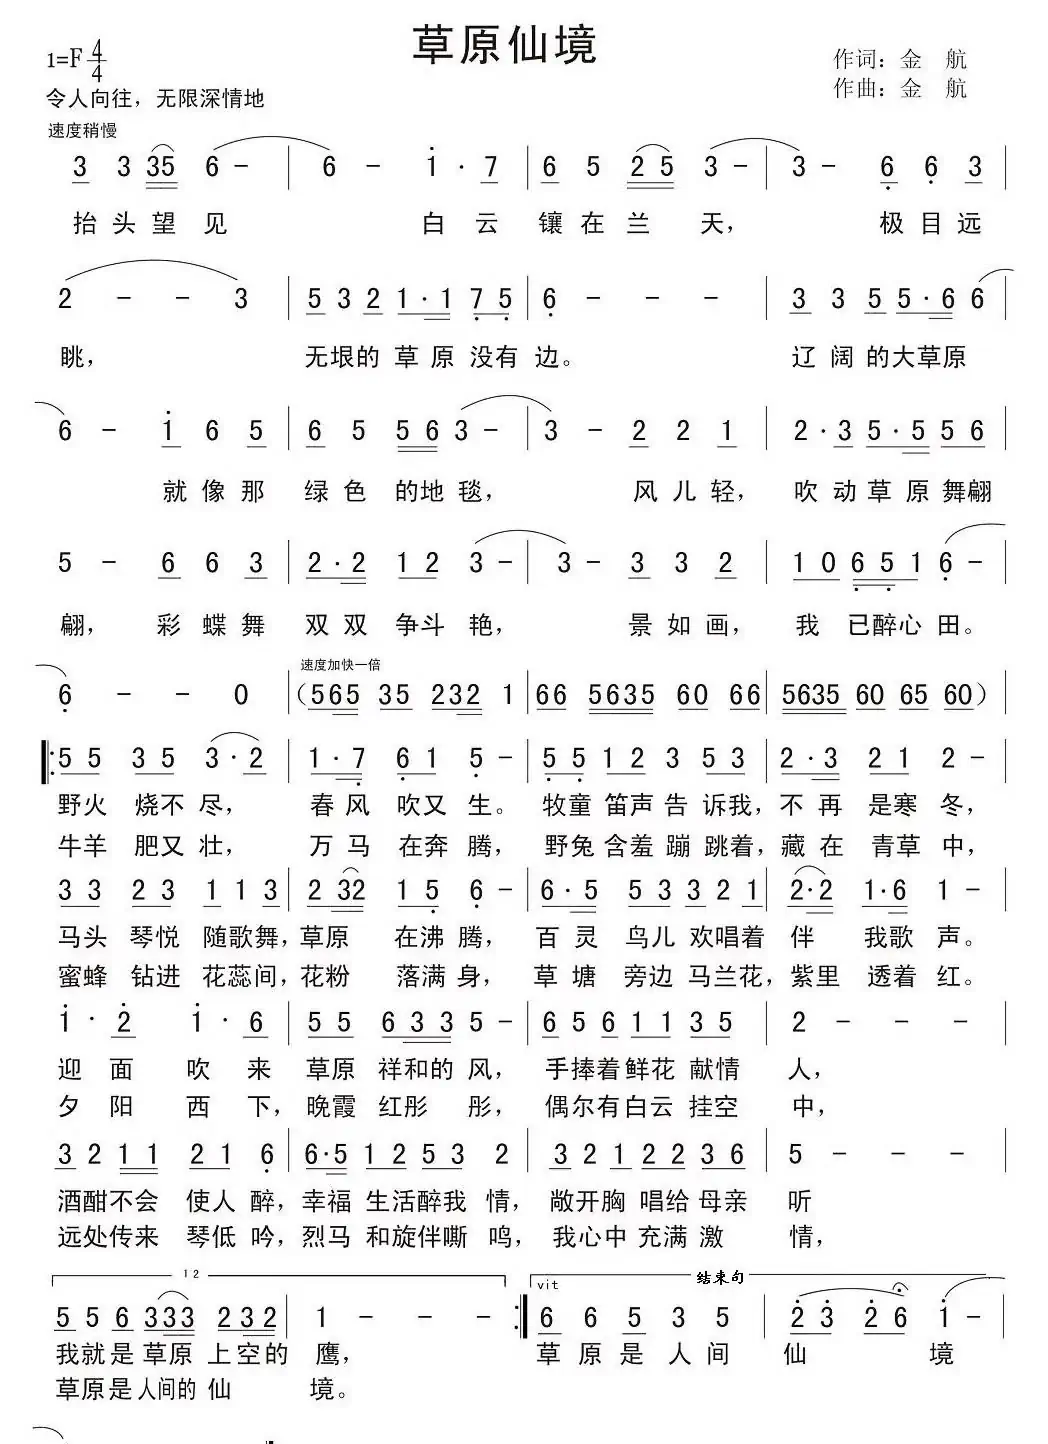 草原仙境
1=F 4/4
作词：金 航
作曲：金 航
令人向往，无限深情地
速度稍慢
3 3 35 6 - | 6 - i · 7 | 6 5 25 3 - | 3 - 6 6 3 |
抬头望见 白云镶在兰天，极目远
2 - - 3 | 5 3 2 1·1 7 5 | 6 - - - | 3 3 5 5·6 6 |
眺，无垠的草原没有边。辽阔的大草原
6 - i 6 5 | 6 5 56 3 - | 3 - 2 2 1 | 2·3 5·5 5 6 |
就像那绿色的地毯，风儿轻，吹动草原舞翩
5 - 6 6 3 | 2·2 1 2 3 - | 3 - 3 3 2 | 1 0 6 5 1 6 - |
翩，彩蝶舞双双争斗艳，景如画，我已醉心田。
速度加快一倍
6 - - 0 |（565 35 232 1 | 66 5635 60 66 | 5635 60 65 60）|
5 5 3 5 3·2 | 1·7 6 1 5 - | 5 5 1 2 3 5 3 | 2·3 2 1 2 - |
野火烧不尽，春风吹又生。牧童笛声告诉我，不再是寒冬，
牛羊肥又壮，万马在奔腾，野兔含羞蹦跳着，藏在青草中，
3 3 2 3 1 1 3 | 2 32 1 5 6 - | 6·5 5 3 3 2 1 | 2·2 1·6 1 - |
马头琴悦随歌舞，草原在沸腾，百灵鸟儿欢唱着伴我歌声。
蜜蜂钻进花蕊间，花粉落满身，草塘旁边马兰花，紫里透着红。
i · 2 i · 6 | 5 5 6 3 3 5 - | 6 5 6 1 1 3 5 | 2 - - - |
迎面吹来草原祥和的风，手捧着鲜花献情人，
夕阳西下，晚霞红彤彤，偶尔有白云挂空中，
3 2 1 1 2 1 6 | 6·5 1 2 5 3 2 | 3 2 1 2 2 3 6 | 5 - - - |
酒酣不会使人醉，幸福生活醉我情，敞开胸唱给母亲听
远处传来琴低吟，烈马和旋伴嘶鸣，我心中充满激情，
1 2
vit 结束句
5 5 6 333 2 3 2 | 1 - - - :| 6 6 5 3 5 | 2 3 2 6 i - |
我就是草原上空的鹰，草原是人间仙境
草原是人间的仙境。